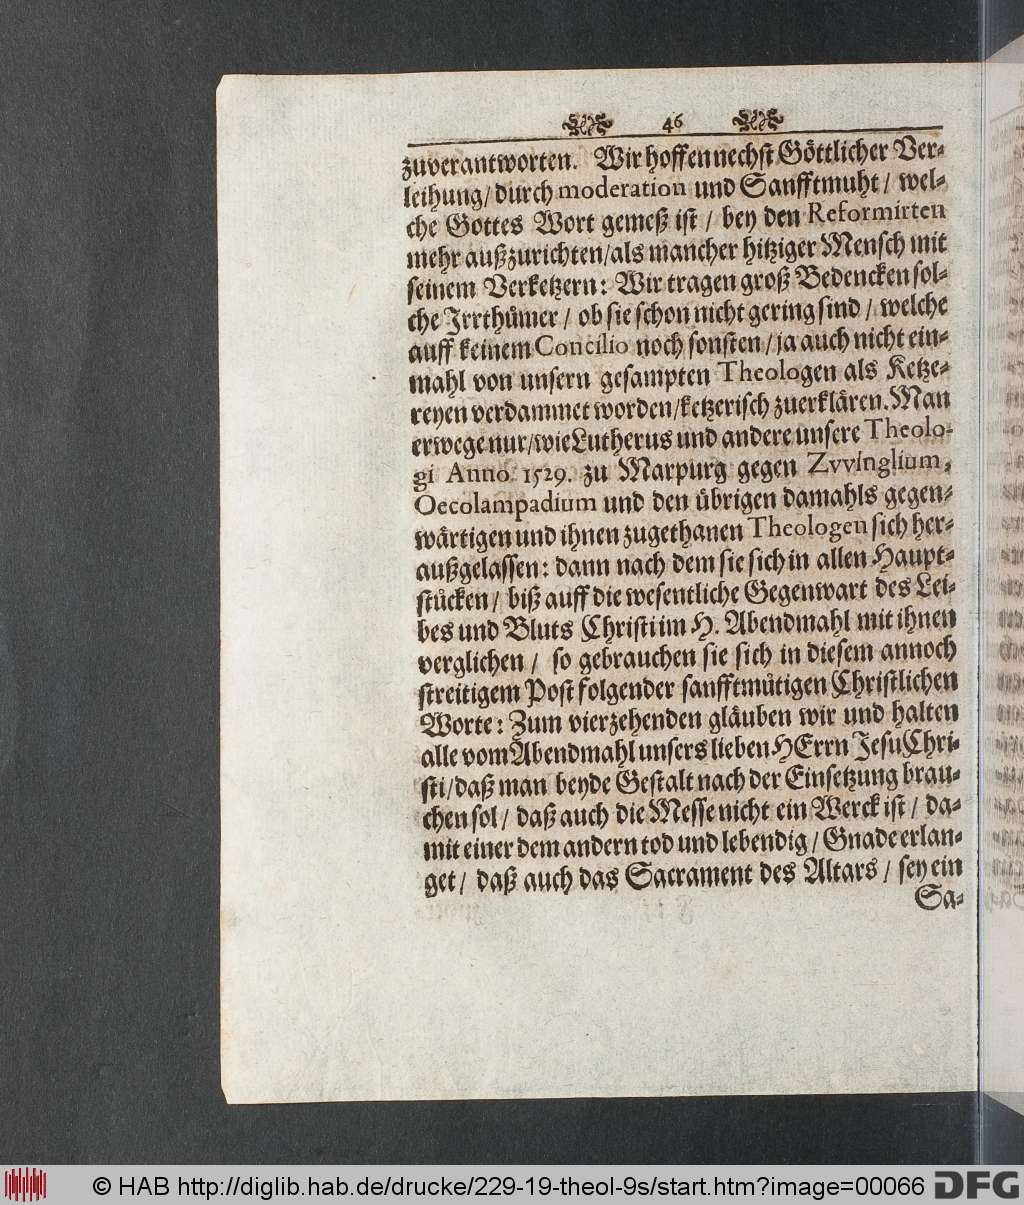 46
zuverantworten. Wir hoffen nechst Göttlicher Ver-
leihung/ durch moderation und Sanfftmuht/ wel-
che Gottes Wort gemeß ist/ bey den Reformirten
mehr außzurichten/ als mancher hitziger Mensch mit
seinem Verketzern: Wir tragen groß Bedencken sol-
che Irrthümer/ ob sie schon nicht gering sind/ welche
auff keinem Concilio noch sonsten/ ja auch nicht ein-
mahl von unsern gesampten Theologen als Ketze-
reyen verdammet worden/ ketzerisch zuerklären. Man
erwege nur/ wie Lutherus und andere unsere Theolo-
gi Anno 1529. zu Marpurg gegen Zvvinglium,
Oecolampadium und den übrigen damahls gegen-
wärtigen und ihnen zugethanen Theologen sich her-
außgelassen: dann nach dem sie sich in allen Haupt-
stücken/ biß auff die wesentliche Gegenwart des Lei-
bes und Bluts Christi im H. Abendmahl mit ihnen
verglichen/ so gebrauchen sie sich in diesem annoch
streitigem Post folgender sanfftmütigen Christlichen
Worte: Zum vierzehenden gläuben wir und halten
alle vom Abendmahl unsers lieben HErrn Jesu Chri-
sti/ daß man beyde Gestalt nach der Einsetzung brau-
chen sol/ daß auch die Messe nicht ein Werck ist/ da-
mit einer dem andern tod und lebendig/ Gnade erlan-
get/ daß auch das Sacrament des Altars/ sey ein
Sa-
© HAB http://diglib.hab.de/drucke/229-19-theol-9s/start.htm?image=00066
DFG